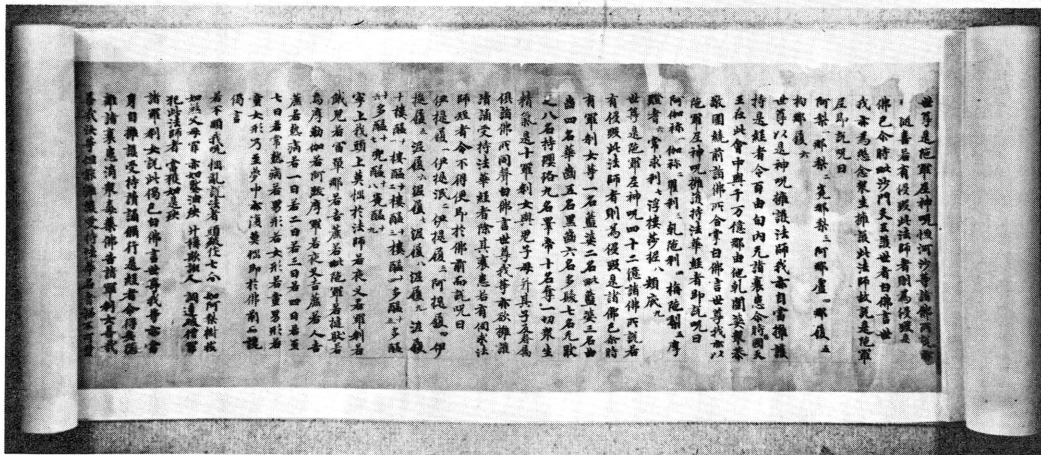 世尊是陀羅尼神呪恒河沙等諸佛所說亦
皆隨喜若有侵毀此法師者則為侵毀是
佛已尒時毗沙門天王護世者白佛言世
我亦為愍念衆生擁護此法師故說是陀羅
尼即說呪曰
阿梨一那梨二㝹那梨三阿那盧四那履五
拘那履六
世尊以是神呪擁護法師我亦自當擁護
持是經者令百由旬內无諸衰患尒時持國天
王在此會中與千万億那由他乾闥婆衆恭
敬圍繞前詣佛所合掌白佛言世尊我亦以
陀羅尼神呪擁護持法華經者即說呪曰
阿伽祢一伽祢二瞿利三乾陀利四栴陀利五摩
蹬耆六常求利七浮樓莎抳八頞底九
世尊是陀羅尼神呪四十二億諸佛所說若
有侵毀此法師者則為侵毀是諸佛已尒時
有羅刹女等一名藍婆二名毗藍婆三名曲
齒四名華齒五名黑齒六名多髮七名无猒
足八名持瓔珞九名睪帝十名奪一切衆生
精氣是十羅刹女與鬼子母并其子及眷屬
俱詣佛所同聲白佛言世尊我等亦欲擁護
讀誦受持法華經者除其衰患若有伺求法
師短者令不得便即於佛前而說呪曰
伊提履一伊提泯二伊提履三阿提履四伊
提履五泥履六泥履七泥履八泥履九泥履
十樓醯十一樓醯十二樓醯十三樓醯十四多醯十五多醯
十六多醯十七兜醯十八㝹醯十九
寧上我頭上莫惱於法師若夜叉若羅刹若
餓鬼若富單那若吉蔗若毗陀羅若揵馱若
烏摩勒伽若阿跋摩羅若夜叉吉蔗若人吉
蔗若熱病若一日若二日若三日若四日若至
七日若常熱病若男形若女形若童男形若
童女形乃至夢中亦復莫惱即於佛前而說
偈言
若不順我呪 惱亂說法者 頭破作七分 如阿梨樹枝
如煞父母罪 亦如壓油殃 斗秤欺誑人 調達破僧罪
犯此法師者 當獲如是殃
諸羅刹女說此偈已白佛言世尊我等亦當
身自擁護受持讀誦脩行是經者令得安隱
離諸衰患消衆毒藥佛告諸羅刹女善哉
善哉汝等但能擁護受持法華名者福不可量